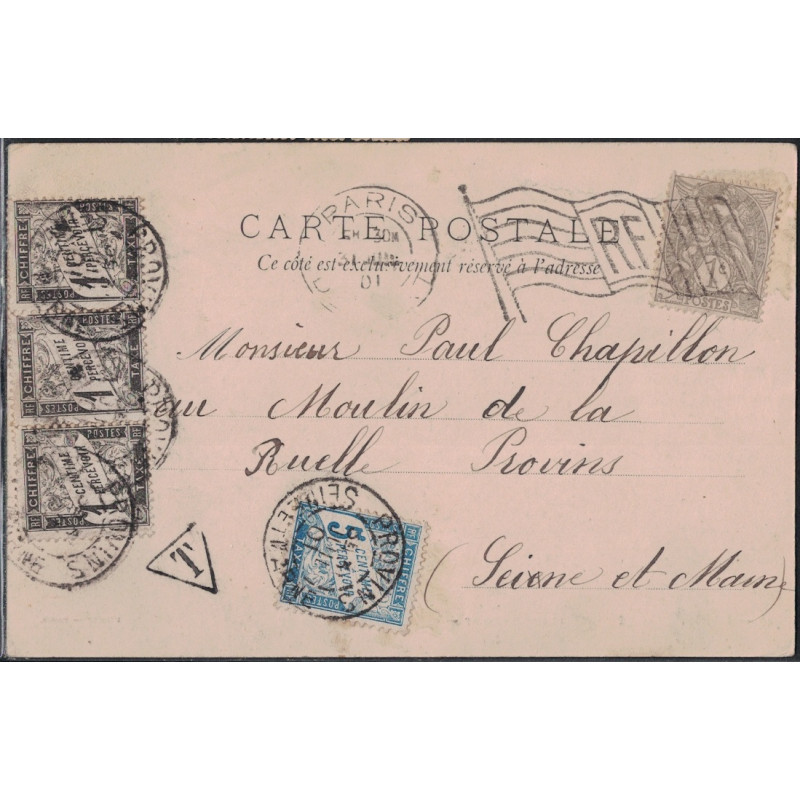 CARTE POSTALE
Ce côté est exclusivement réservé à l'adresse
PARIS
01
R.F.
1c
POSTES
Monsieur Paul Chapillon
au Moulin de la
Ruelle Provins
(Seiene et Marne
CHIFFRE
1
CENTIME
A PERCEVOIR
TAXE
POSTES
RF
CHIFFRE
1
CENTIME
PERCEVOIR
TAXE
POSTES
RF
CHIFFRE
1
CENTIME
PERCEVOIR
TAXE
POSTES
RF
PROVINS
T
CHIFFRE
5
CENTIMES
PERCEVOIR
TAXE
POSTES
PROVINS
SEINE-ET-MARNE
01